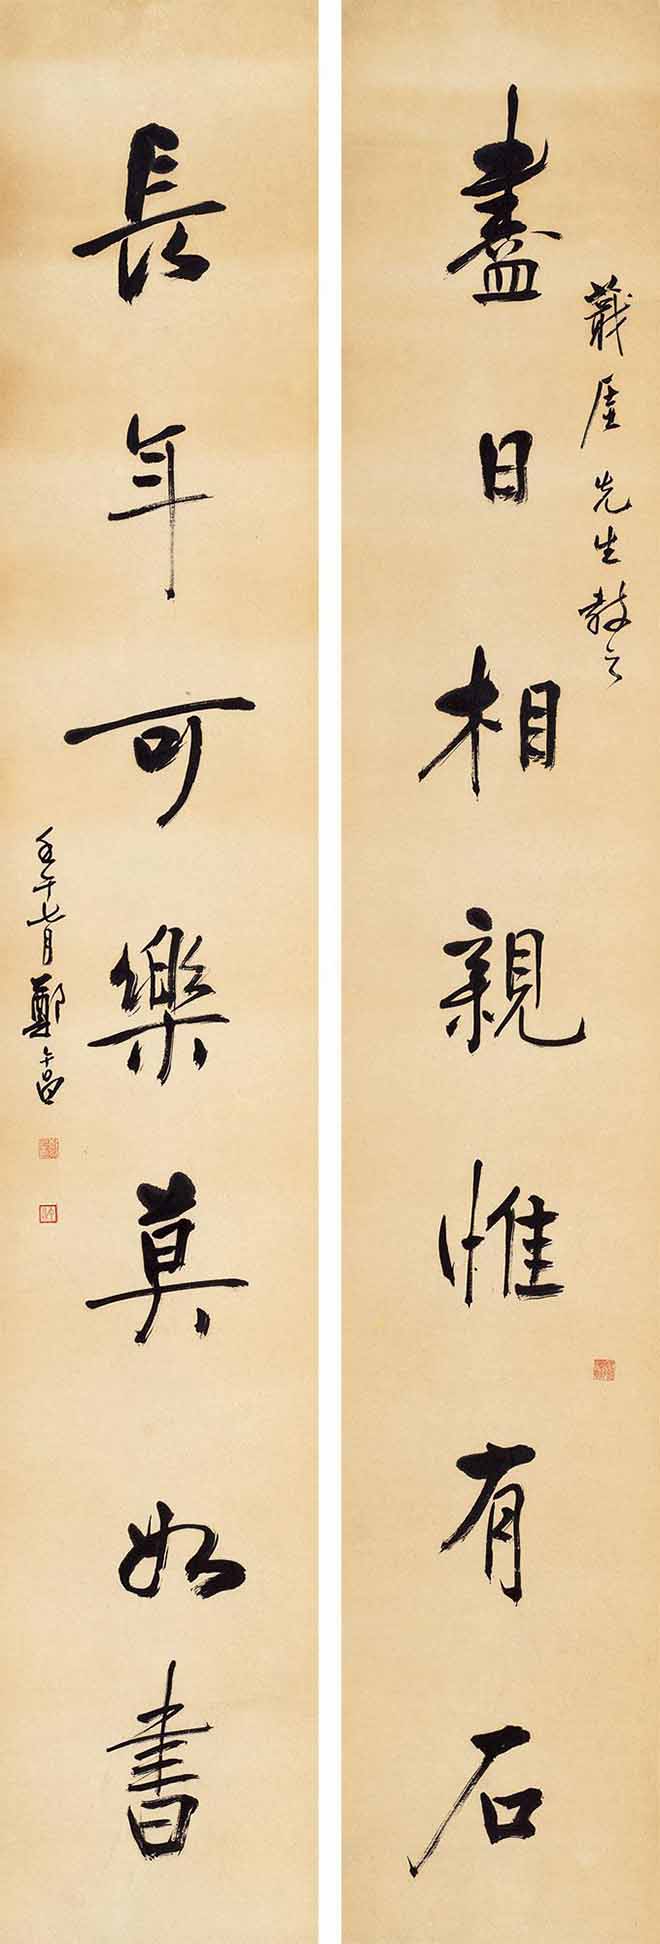 盡日相親惟有石
先生教之
長年可樂莫如書
壬午七月鄭午昌